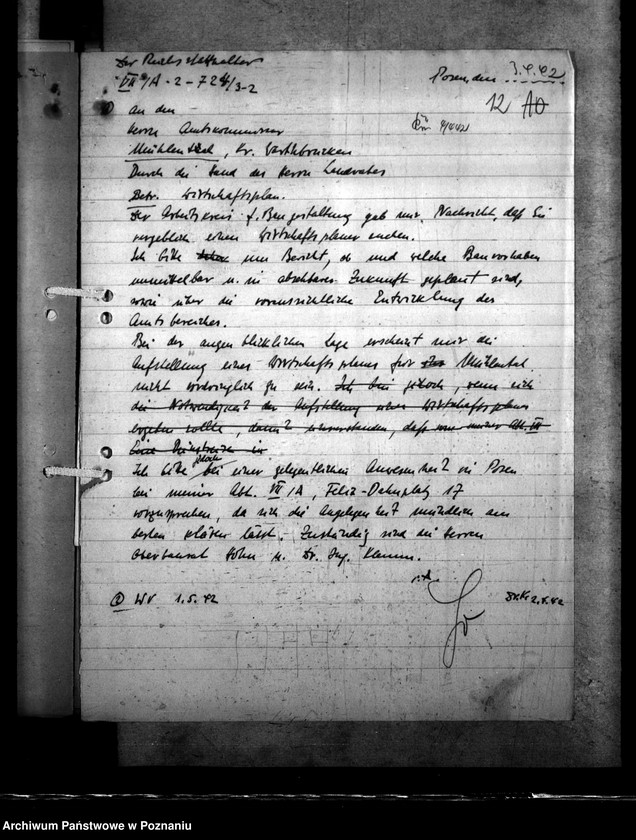 Der Reichsstatthalter
VII /A - 2 - 724/3-2
Posen, den 3.4.42
12 10
1) An den
Herrn Amtskommissar
Mühlental, Kr. Warthbrücken
Durch die Hand des Herrn Landrates
Betr. Wirtschaftsplan.
Der Arbeitskreis f. Baugestaltung gab mir Nachricht, daß Sie
vergeblich einen Wirtschaftsplaner suchen.
Ich bitte um Bericht, ob und welche Bauvorhaben
unmittelbar u. in absehbarer Zukunft geplant sind,
sowie über die voraussichtliche Entwicklung des
Amtsbereiches.
Bei der augenblicklichen Lage erscheint mir die
Aufstellung eines Wirtschaftsplanes für Mühlental
nicht vordringlich zu sein. Ich bin jedoch, wenn sich
die Notwendigkeit der Aufstellung eines Wirtschaftsplanes
ergeben sollte, damit einverstanden, daß von meiner Abt. VII
Ich bitte jedoch bei einer gelegentlichen Anwesenheit in Posen
bei meiner Abt. VII/A, Felix-Dahnplatz 17
vorzusprechen, da sich die Angelegenheit mündlich am
besten klären lässt. Zuständig sind die Herren
Oberbaurat Sohn u. Dr. Ing. Klamm.
i.A.
2) WV 1.5.42
2.4.42
Archiwum Państwowe w Poznaniu